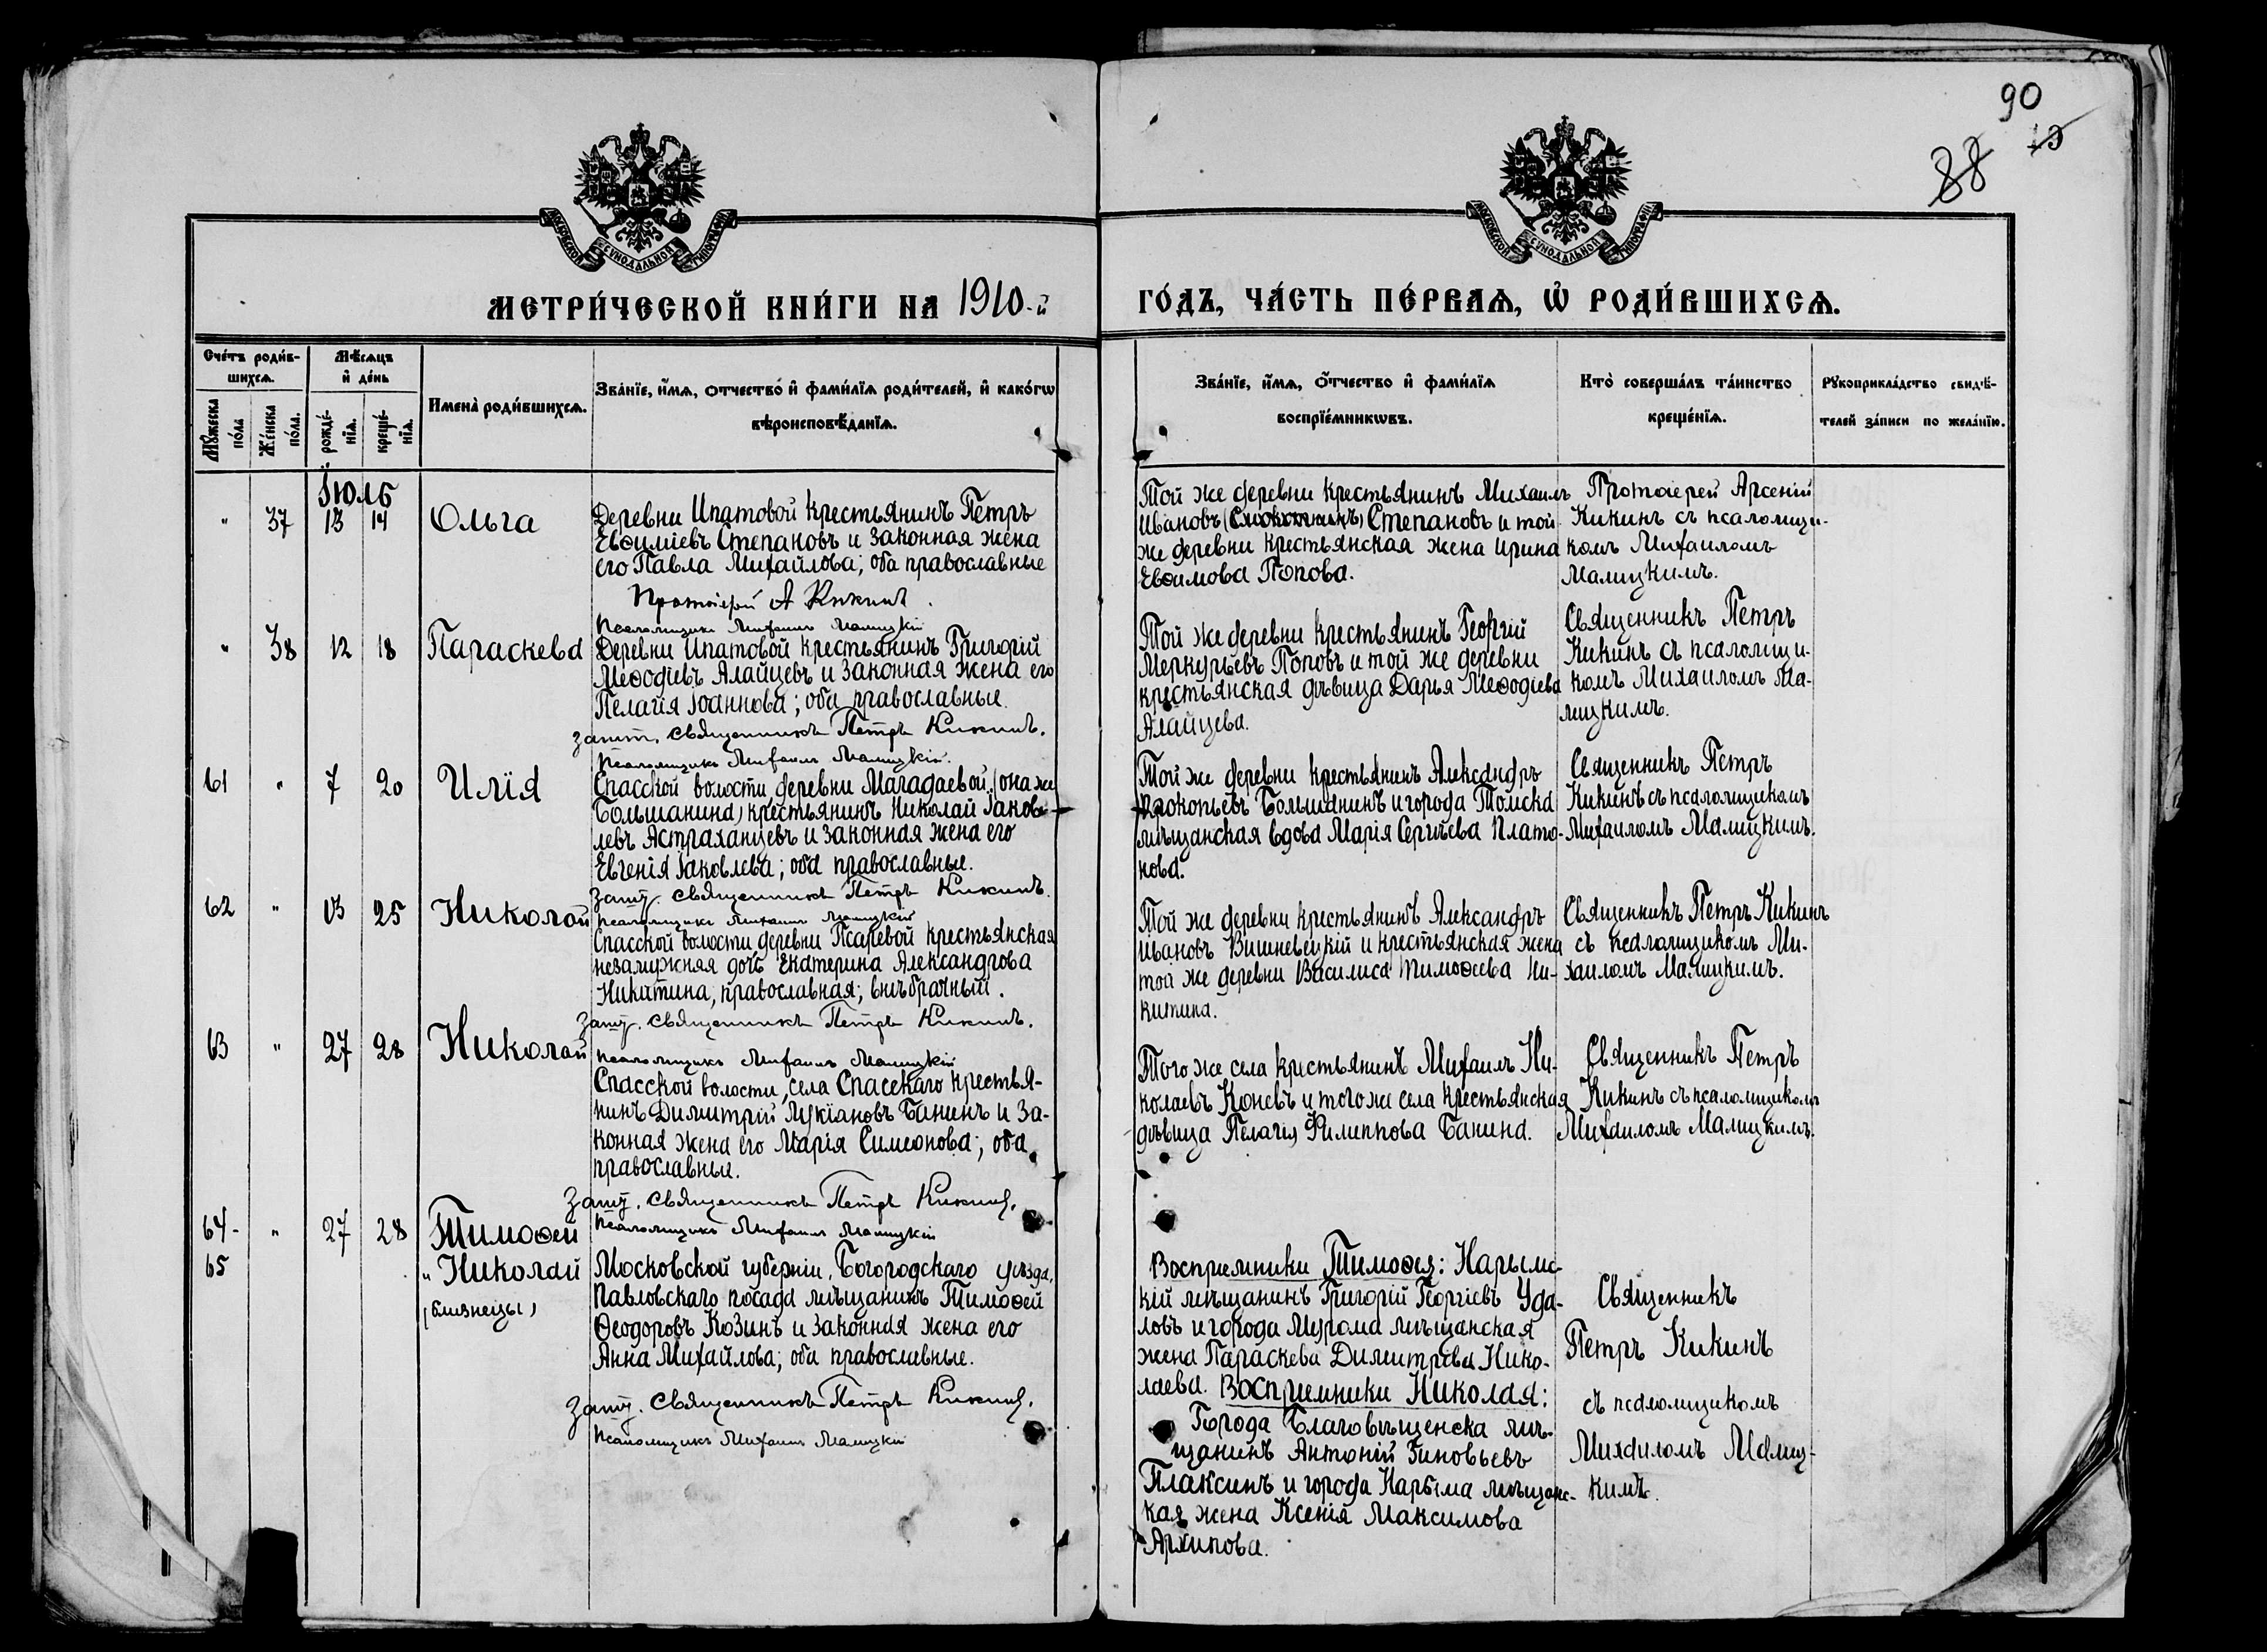 90
88
МОСКОВСКОЙ СѴНОДАЛЬНОЙ ТИПОГРАФІИ
МОСКОВСКОЙ СѴНОДАЛЬНОЙ ТИПОГРАФІИ
МЕТРИ́ЧЕСКОЙ КНИ́ГИ НА 1910-й
ГО́ДЪ, ЧА́СТЬ ПЕ́РВАѦ, Ѡ҆ РОДИ́ВШИХСѦ.
Сче́тъ роди́в-
шихсѧ.
Мѣ́сѧцъ
и҆ де́нь
Мꙋ́жеска
по́ла
Же́нска
по́ла.
рожде́-
нїѧ.
креще́-
нїѧ.
Имена̀ роди́вшихсѧ.
Зва́нїе, и҆́мѧ, ѻ҆́тчество и҆ фами́лїѧ роди́телей, и҆ како́гѡ
вѣроисповѣ́данїѧ.
Зва́нїе, и҆́мѧ, ѻ҆́тчество и҆ фами́лїѧ
воспрїе́мникѡвъ.
Кто̀ соверша́лъ та́инство
креще́нїѧ.
Рꙋкоприкла́дство свидѣ́-
телей за́писи по жела́нїю.
Іюль
" 37 13 14 Ольга
Деревни Ипатовой крестьянинъ Петръ
Евѳиміевъ Степановъ и законная жена
его Павла Михайлова; оба православные
Протоіерей А Кикинъ.
Псаломщикъ Михаилъ Малицкій
Той же деревни крестьянинъ Михаилъ
Ивановъ Степановъ и той
же деревни крестьянская жена Ирина
Евѳимова Попова.
Протоіерей Арсеній
Кикинъ съ псаломщи-
комъ Михаиломъ
Малицкимъ.
" 38 12 18 Параскева
Деревни Ипатовой крестьянинъ Григорій
Меѳодіевъ Алайцевъ и законная жена его
Пелагія Іоаннова; оба православные.
Священникъ Петръ Кикинъ.
Псаломщикъ Михаилъ Малицкій.
Той же деревни крестьянинъ Георгій
Меркурьевъ Поповъ и той же деревни
крестьянская дѣвица Дарья Меѳодіева
Алайцева.
Священникъ Петръ
Кикинъ съ псаломщи-
комъ Михаиломъ Ма-
лицкимъ.
61 " 7 20 Илія
Спасской волости, деревни Магадаевой (она же
Большанина) крестьянинъ Николай Іаков-
левъ Астраханцевъ и законная жена его
Евгенія Іаковлева; оба православные.
Священникъ Петръ Кикинъ.
Псаломщикъ Михаилъ Малицкій
Той же деревни крестьянинъ Александръ
Прокопьевъ Большанинъ и города Томска
мѣщанская вдова Марія Сергѣева Плато-
нова.
Священникъ Петръ
Кикинъ съ псаломщикомъ
Михаиломъ Малицкимъ.
62 " 13 25 Николай
Спасской волости деревни Псаревой крестьянская
незамужняя дочь Екатерина Александрова
Никитина, православная; внѣбрачный.
Священникъ Петръ Кикинъ.
Псаломщикъ Михаилъ Малицкій
Той же деревни крестьянинъ Александръ
Ивановъ Вишневецкій и крестьянская жена
той же деревни Василиса Тимоѳеева Ни-
китина.
Священникъ Петръ Кикинъ
съ псаломщикомъ Ми-
хаиломъ Малицкимъ.
63 " 27 28 Николай
Спасской волости, села Спасскаго крестья-
нинъ Димитрій Лукіановъ Банинъ и за-
конная жена его Марія Симеонова; оба
православные.
Священникъ Петръ Кикинъ.
Псаломщикъ Михаилъ Малицкій
Того же села крестьянинъ Михаилъ Ни-
колаевъ Коневъ и того же села крестьянская
дѣвица Пелагія Филиппова Банина.
Священникъ Петръ
Кикинъ съ псаломщикомъ
Михаиломъ Малицкимъ.
64- " 27 28 Тимоѳей
65 " Николай
(близнецы)
Московской губерніи, Богородскаго уѣзда,
Павловскаго посада мѣщанинъ Тимоѳей
Ѳеодоровъ Козинъ и законная жена его
Анна Михайлова; оба православные.
Священникъ Петръ Кикинъ.
Псаломщикъ Михаилъ Малицкій
Восприемники Тимоѳея: Нарымс-
кій мѣщанинъ Григорій Георгіевъ Уда-
ловъ и города Мурома мѣщанская
жена Параскева Димитріева Нико-
лаева. Восприемники Николая:
Города Благовѣщенска мѣ-
щанинъ Антоній Зиновьевъ
Плаксинъ и города Нарыма мѣщанс-
кая жена Ксенія Максимова
Архипова.
Священникъ
Петръ Кикинъ
съ псаломщикомъ
Михаиломъ Малиц-
кимъ.